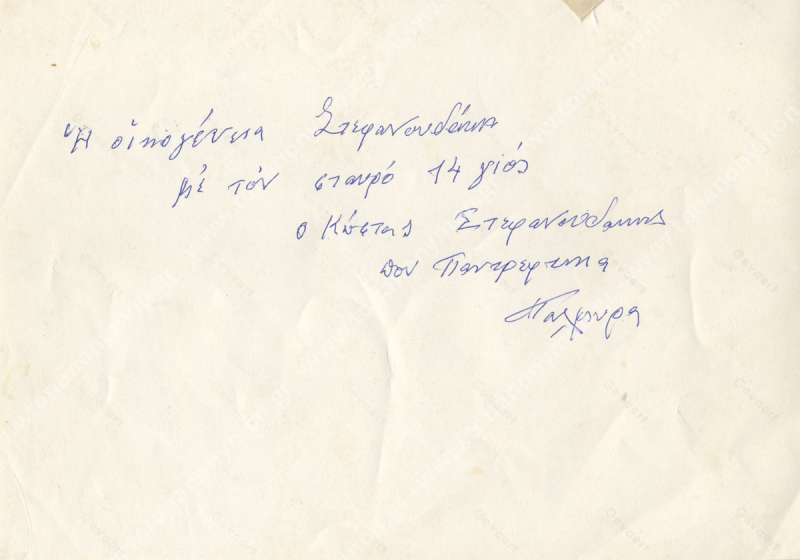 Ἡ οἰκογένεια Στεφανουδάκη
μὲ τόν σταυρό 14 γιός
ο Κώστας Στεφανουδακης
που Παντρεφτικα